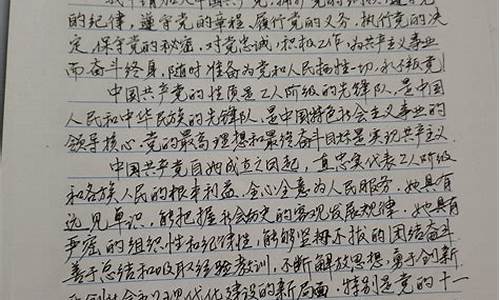 的纪律，遵守党的章程，履行党的义务，执行党的决
定，保守党的秘密，对党忠诚，积极工作，为共产主义事业
而奋斗终身，随时准备为党和人民牺牲一切，永不叛党！
中国共产党的性质是工人阶级的先锋队，是中国
人民和中华民族的先锋队，是中国特色社会主义事业的
领导核心，党的最高理想和最终奋斗目标是实现共产主义
中国共产党自她成立之日起，一直忠实代表工人阶级
和各族人民的根本利益，全心全意为人民服务。她具有
远见卓识，能把握社会历史的客观发展规律。她具有
严密的组织性和纪律性，能够坚持不拔的团结奋斗
善于总结和吸取经验教训，不断解放思想，勇于创新
现代化建设的新局面，特别是党的十一